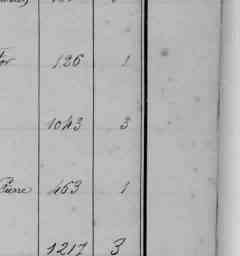 126 1
1043 3
Pierre 463 1
1217 3